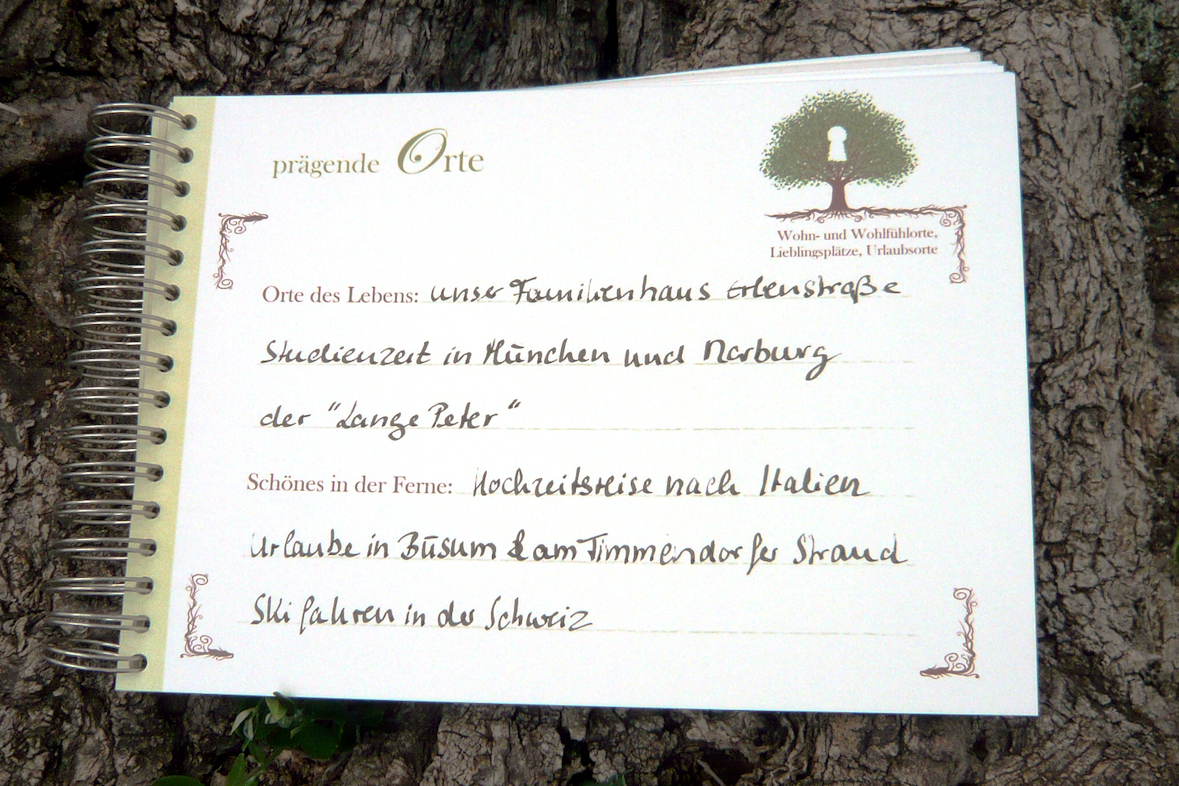 prägende Orte
Wohn- und Wohlfühlorte,
Lieblingsplätze, Urlaubsorte
Orte des Lebens: unser Familienhaus Erlenstraße
Studienzeit in München und Marburg
der "Lange Peter"
Schönes in der Ferne: Hochzeitsreise nach Italien
Urlaube in Büsum & am Timmendorfer Strand
Ski fahren in der Schweiz